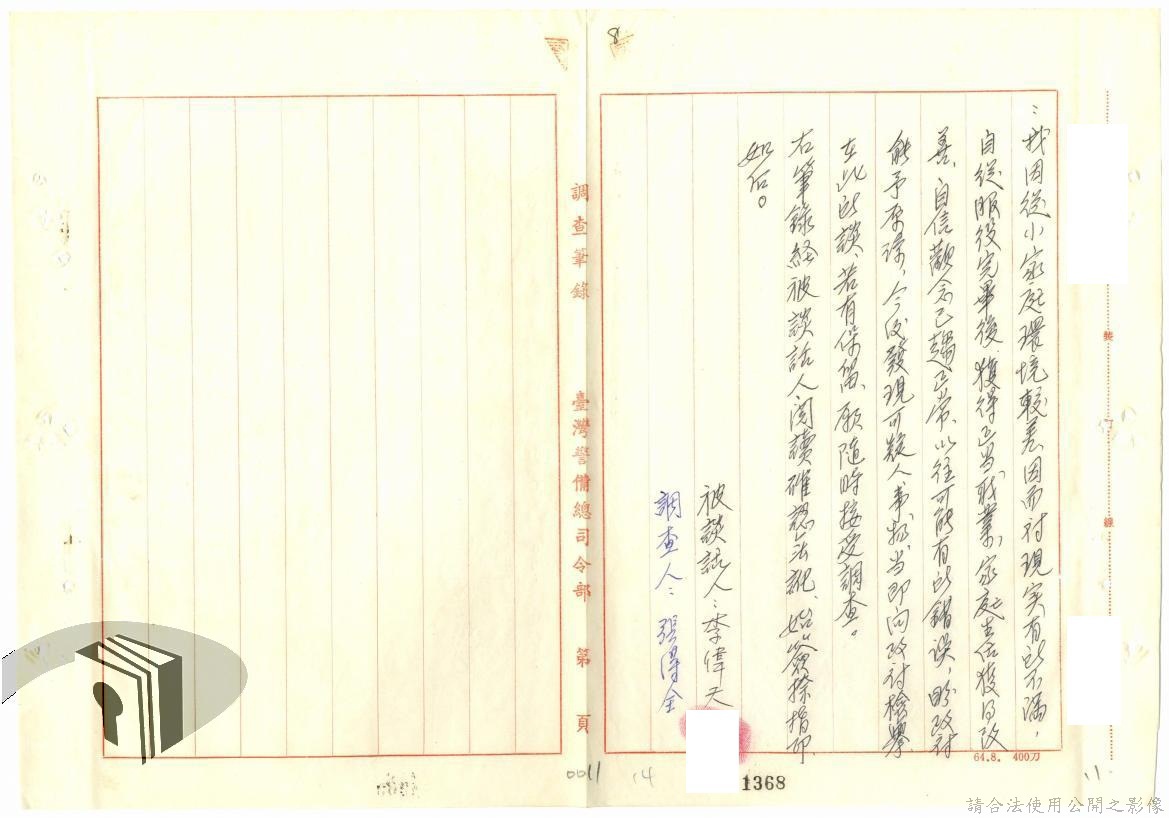 8
：我因從小家庭環境較差因而對現实有所不滿，
自從服役完畢後，獲得正當職業，家庭生活獲得改
善、自信觀念已趨正常、以往可能有所錯誤，盼政府
能予原諒，今後發現可疑人事物、当即向政府檢舉
在此所談、若有保留、願隨時接受調查。
右筆錄經被談話人閱讀確認無訛、始簽捺指印
如右。
被談話人：李偉天
調查人：張得全
裝
訂
線
64.8. 400刀
調查筆錄 臺灣警備總司令部 第 頁
0011
14
1368
11
請合法使用公開之影像